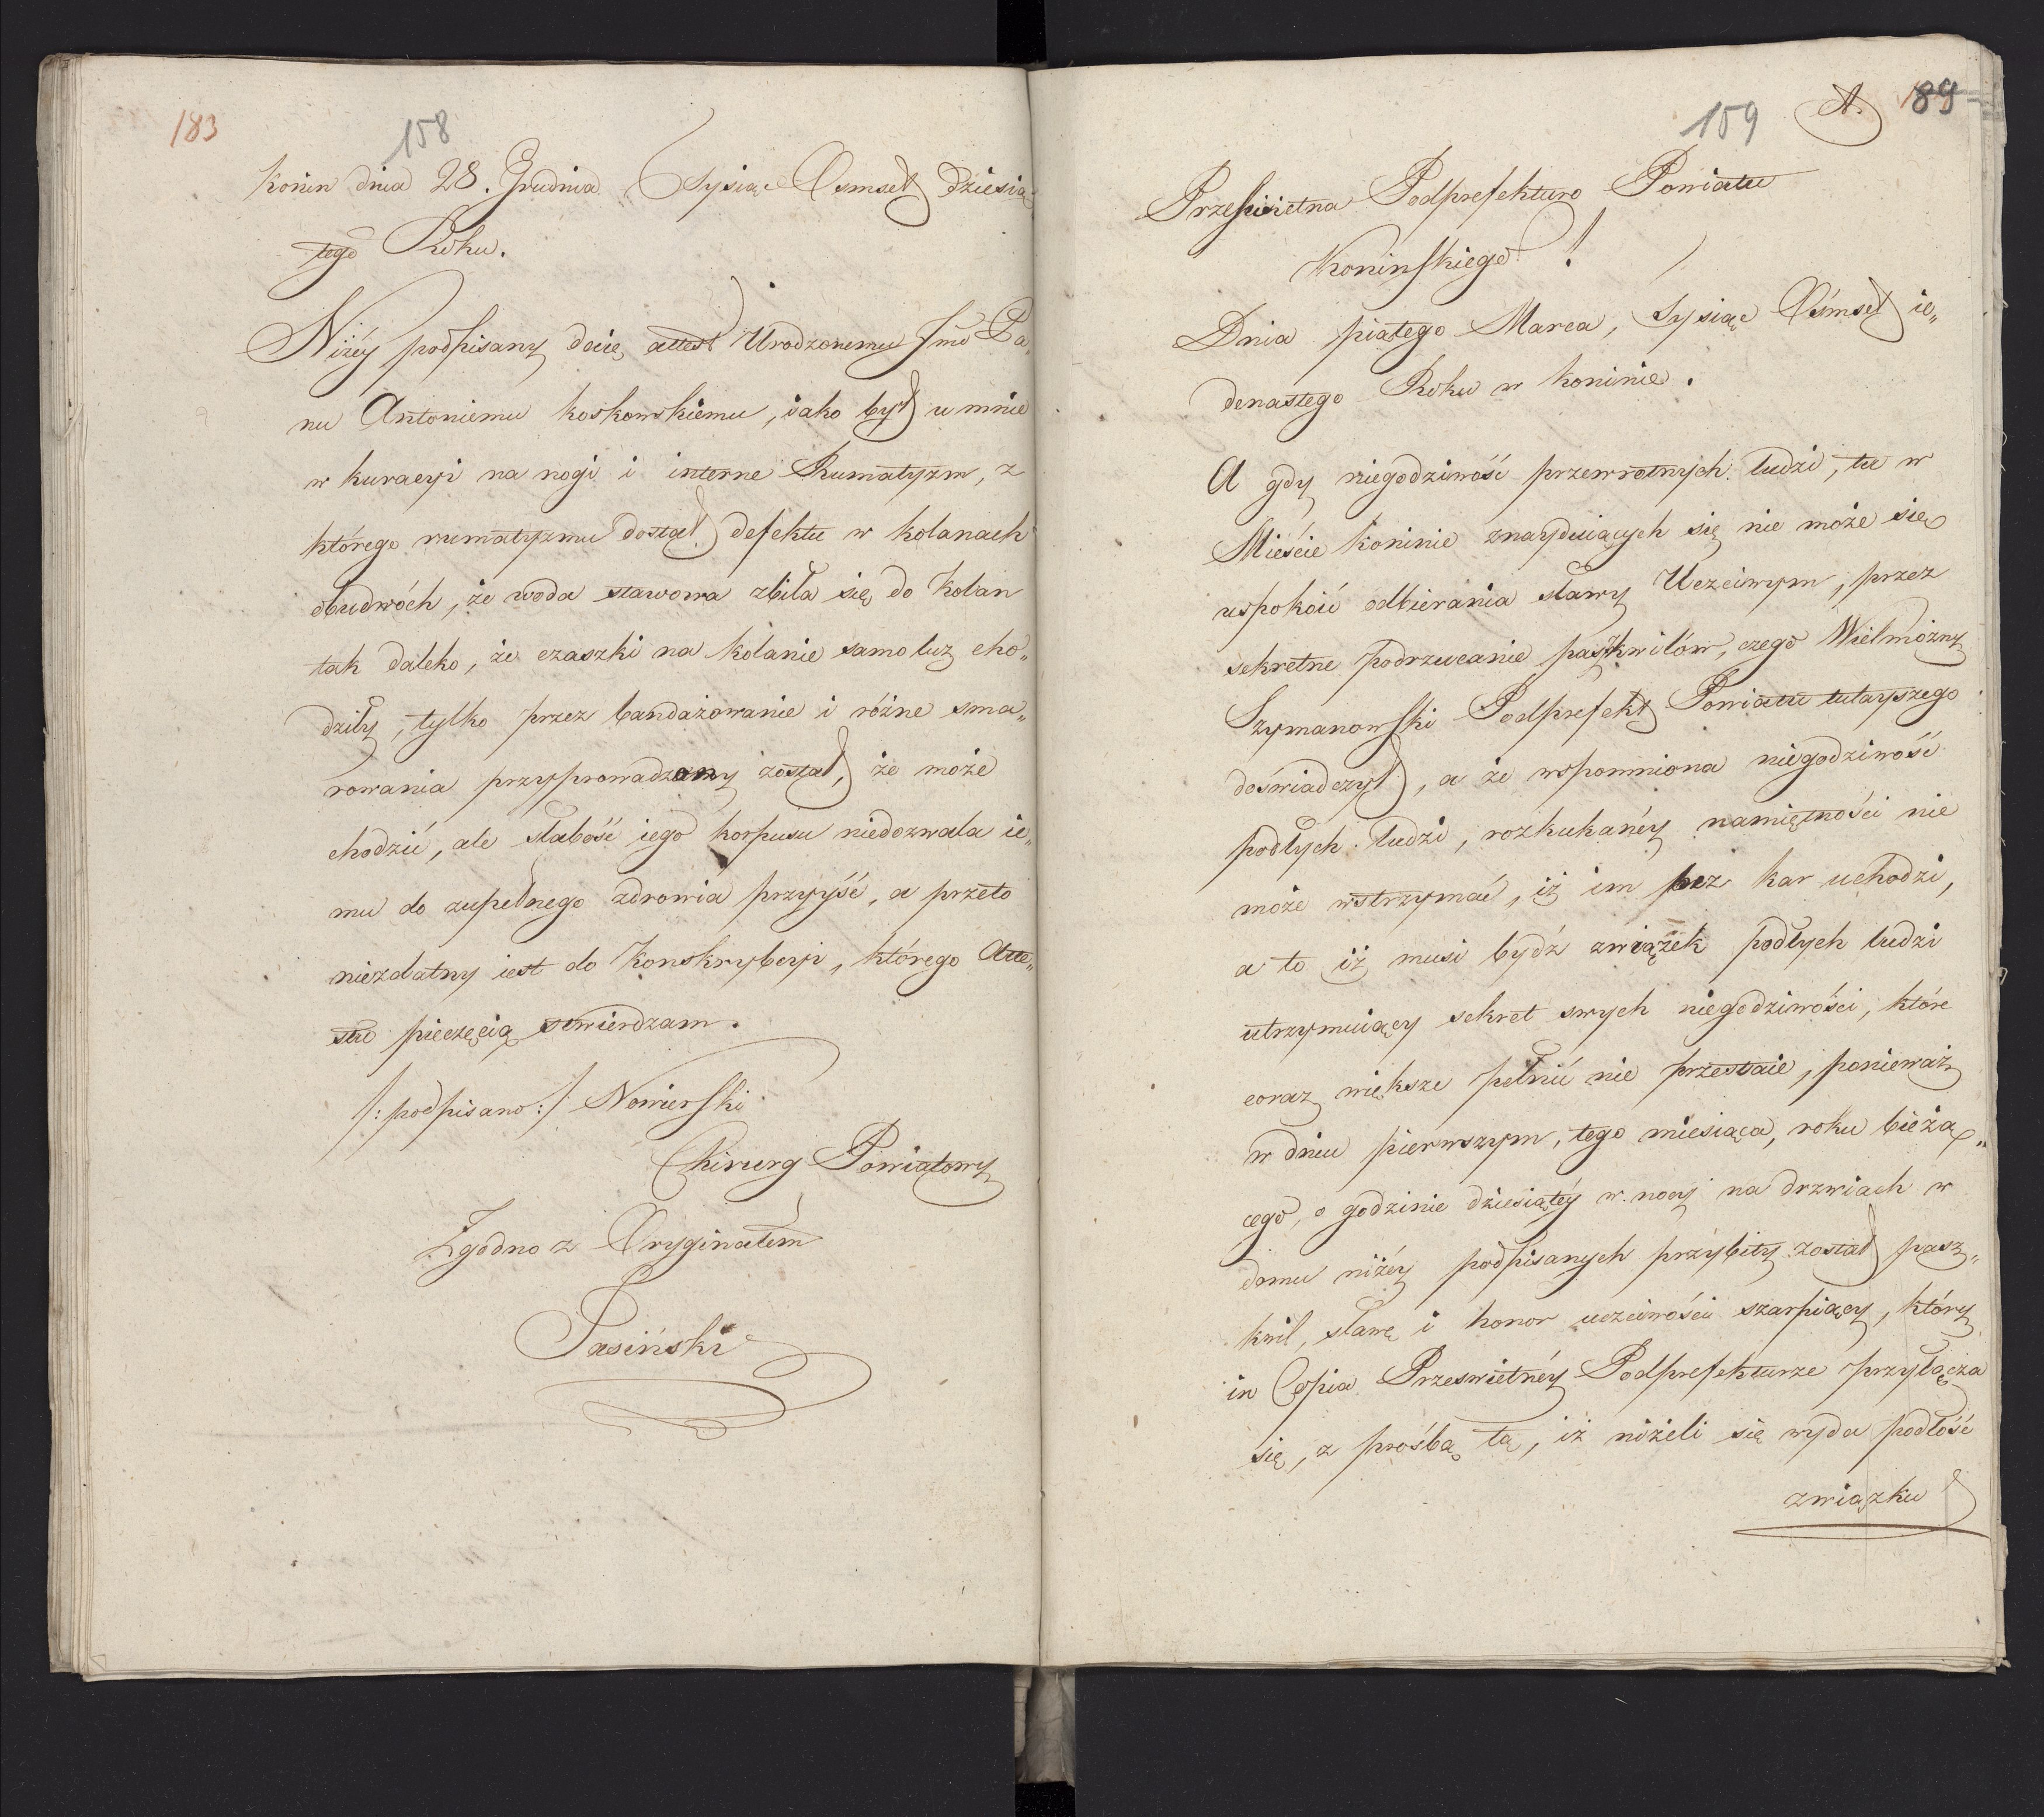 183
158
Konin dnia 28. Grudnia Tysiąc Osmset dziesią
tego Roku.
Niżéy podpisany daię attest Urodzonemu Jmć Pa„
nu Antoniemu Koskowskiemu, iako był u mnie
w kuracyi na nogi i interne Rumatyzm, z
którego rumatyzmu dostał defektu w kolanach
obudwóch, że woda stawowa zbiła się do kolan
tak daleko, że czaszki na kolanie samo luz cho„
dziły, tylko przez bandażowanie i różne sma„
rowania przyprowadzony został, że może
chodzić, ale słabość iego korpusu niedozwala ie„
mu do zupełnego zdrowia przyyść, a przeto
niezdatny iest do Konskrybcyi, którego Atte„
stu pieczęcią stwierdzam.
/: podpisano :/ Nowierski
Chirurg Powiatowy
Zgodno z Oryginałem
Jasiński
159
A. 189
Prześwietna Podprefekturo Powiatu
Koninskiego!
Dnia piątego Marca, Tysiąc Ośmset ie„
denastego Roku w Koninie.
A gdy niegodziwość przewrotnych ludzi, tu w
Mieście Koninie znayduiących się nie może się
uspokoić odbierania sławy Uczciwym, przez
sekretne podrzucanie paszkwilów, czego Wielmożny
Szymanowski Podprefekt Powiatu tutayszego
doświadczył, a że wspomniona niegodziwość
podłych ludzi, rozhukanéy namiętności nie
może wstrzymać, iż im bez kar uchodzi,
a to iż musi bydź związek podłych ludzi
utrzymuiący sekret swych niegodziwości, które
coraz większe pełnić nie przestaie, ponieważ
w dniu pierwszym, tego miesiąca, roku bieżą„
cego, o godzinie dziesiątéy w nocy na drzwiach w
domu niżéy podpisanych przybity został pasz„
kwil, sławę i honor uczciwości szarpiący, który
in Copia Prześwietnéy Podprefekturze przyłącza
się, z prośbą tą, iż niżeli się wyda podłość
związku